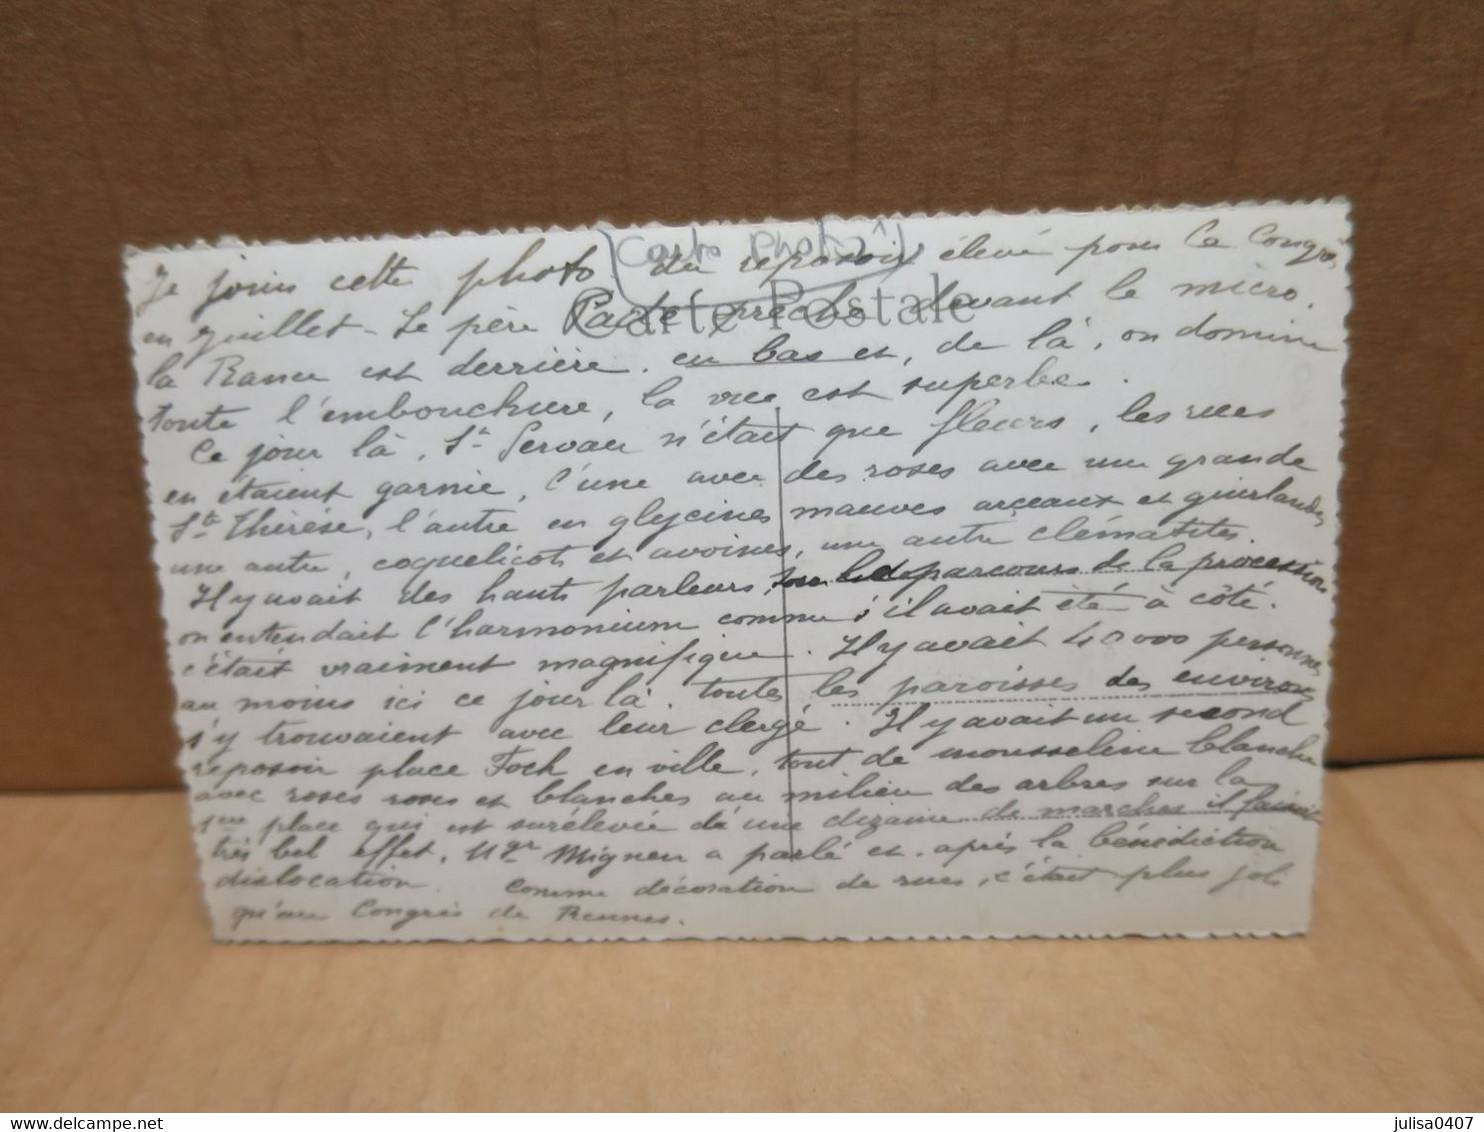 (Carte Photo)
Carte Postale
Je joins cette photo du reposoir élevé pour le Congrès
en Juillet - Le père prêche devant le micro.
la Rance est derrière, en bas et, de là, on domine
toute l'embouchure, la vue est superbe.
Ce jour là, St Servan n'était que fleurs, les rues
en étaient garnie, l'une avec des roses avec une grande
Ste Thérèse, l'autre en glycines mauves arceaux et guirlandes
une autre, coquelicots et avoines, une autre clématites.
Il y avait des hauts parleurs, sur le parcours de la procession
on entendait l'harmonium comme s'il avait été à côté.
c'était vraiment magnifique. Il y avait 40000 personnes
au moins ici ce jour là. toutes les paroisses des environs
s'y trouvaient avec leur clergé. Il y avait un second
reposoir place Foch en ville, tout de mousseline blanche
avec roses roses et blanches au milieu des arbres sur la
place qui est surélevée d'une dizaine de marches il faisait
très bel effet, Mgr Mignen a parlé et après la bénédiction
dislocation. Comme décoration de rues, c'était plus joli
qu'au Congrès de Rennes.
julisa0407